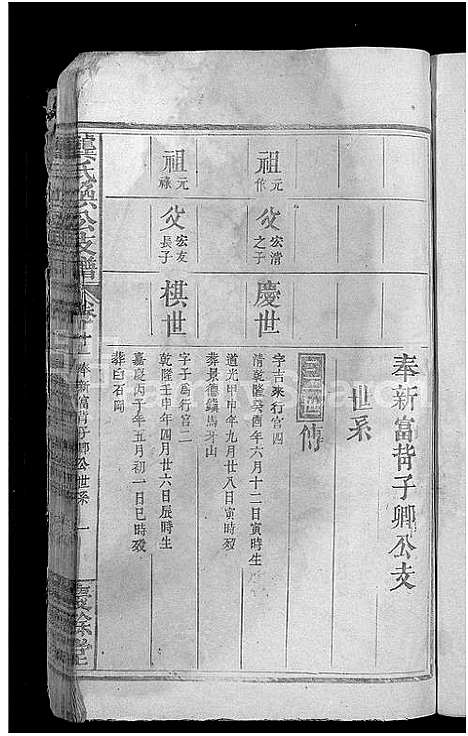 奉新富背子卿公支
世系
傳
祖 元作
父 宏清之子
慶世
字吉來行宫四
清乾隆癸酉年六月十二日寅時生
道光甲申年九月廿八日寅時殁
葬景德鎮馬牙山
祖 元祿
父 宏友長子
棋世
字子爲行宫二
乾隆壬申年四月廿六日辰時生
嘉慶丙子年五月初一日巳時殁
葬臼石岡
龔氏
公支譜
卷廿二
奉新富背子卿公世系
一
慶餘堂